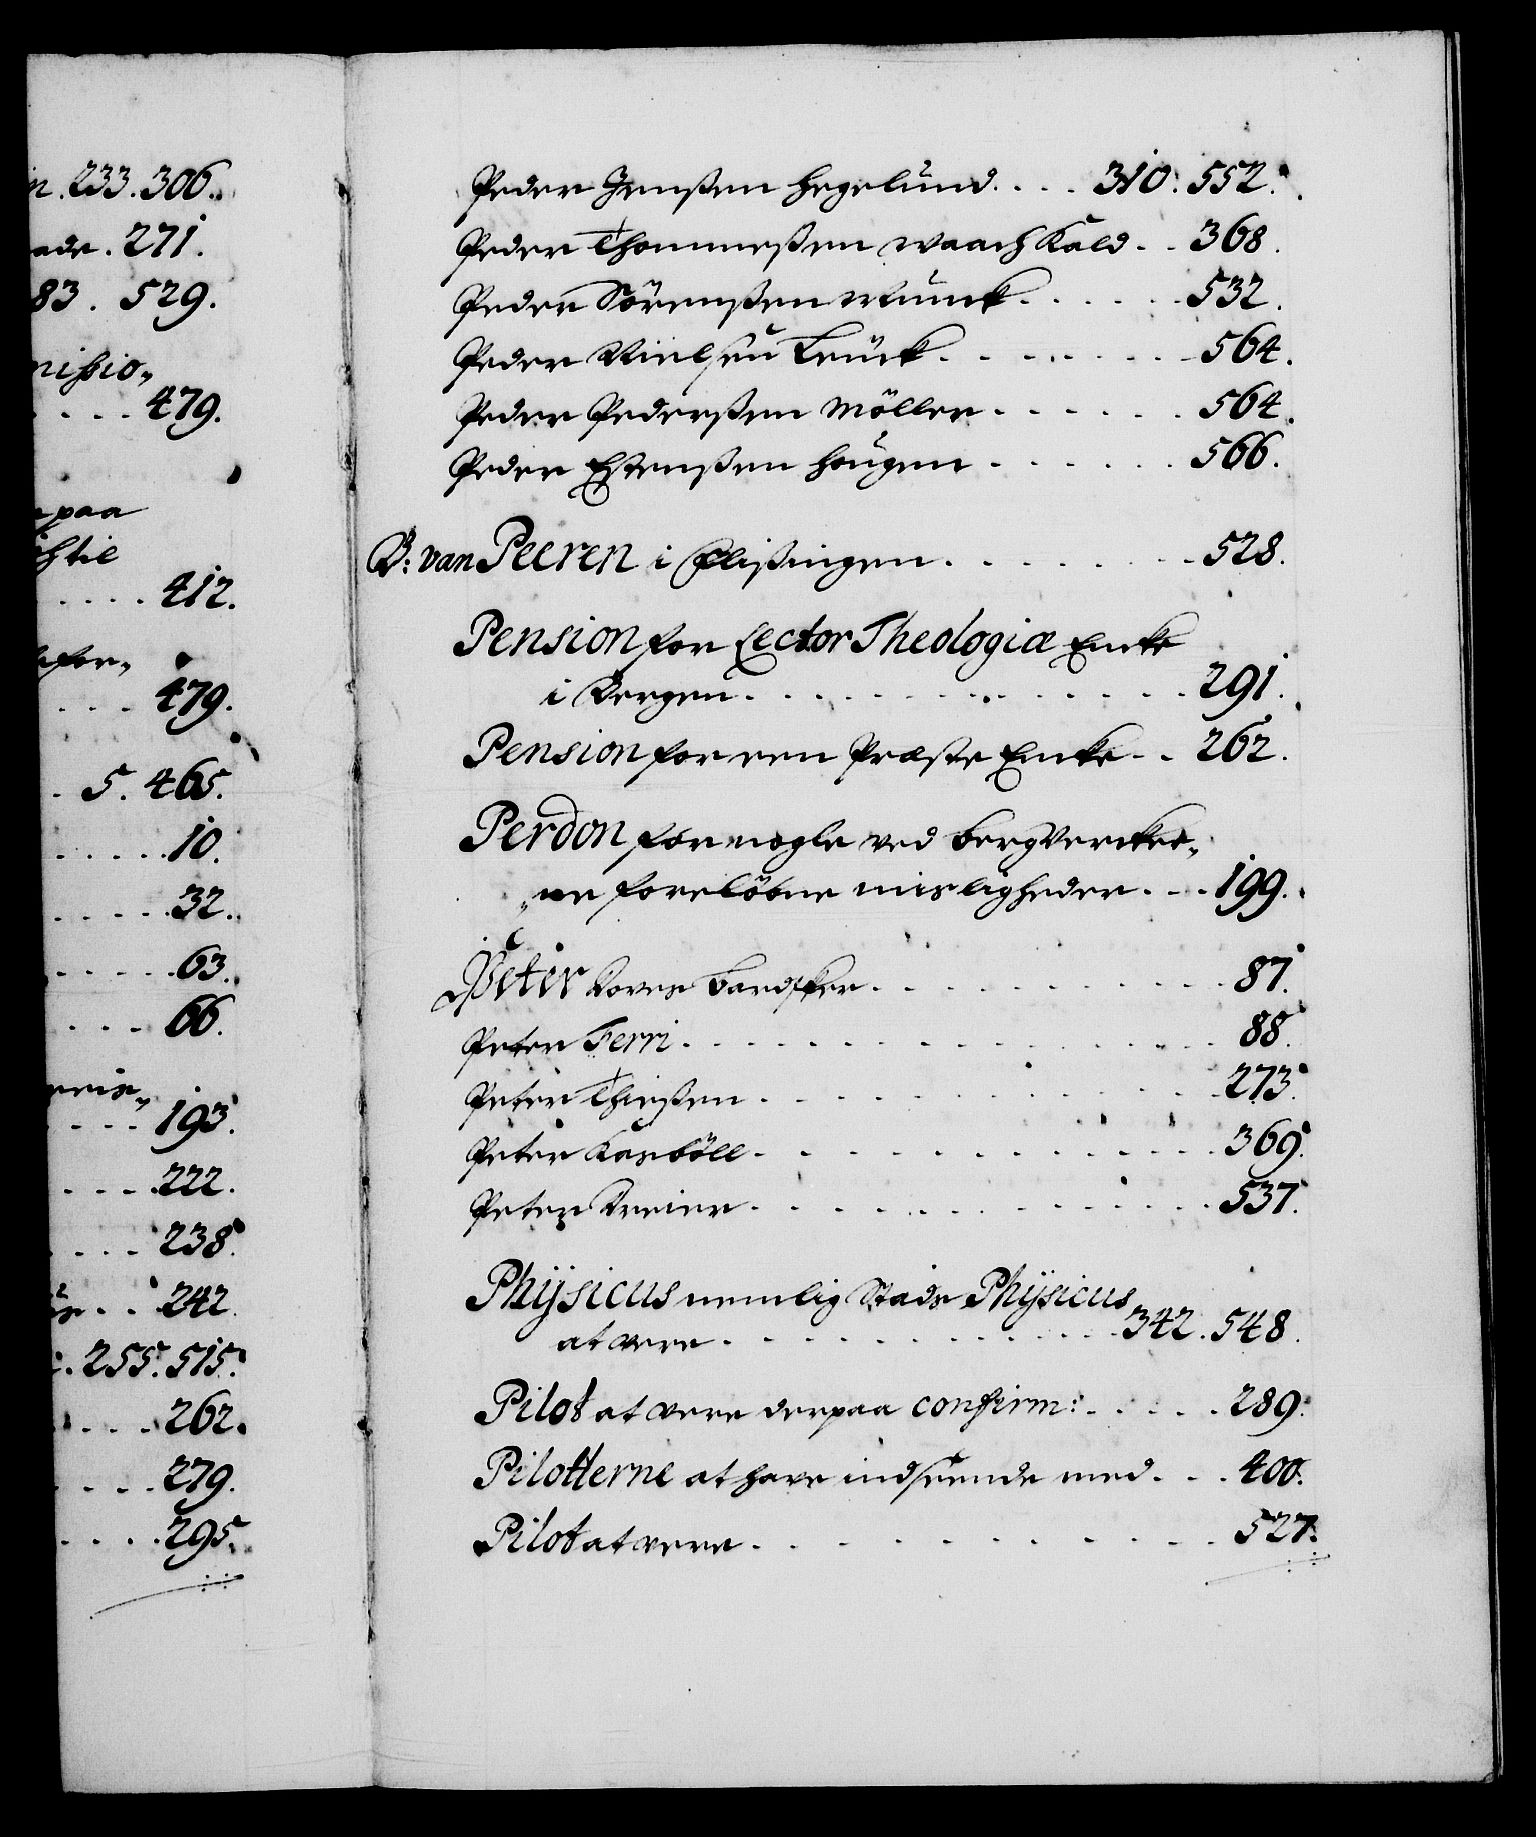 n. 233. 306.
ade. 271.
83. 529.
nissio„
. . . . 479.
paa
412.
for„
. . . 479.
. 5. 465.
. . . . . 10.
. . . . . 32.
. . . . . 63.
. . . . 66.
. . . . 193.
. . . . 222.
. . . . 238.
. . 242.
. 255. 515.
. . . . 262.
. . . . 279.
. . . . 295.
Peder Jenssen Hegelund. . . . 310. 552.
Peder Thommessen Waaschkald. . 368.
Peder Sörenssen Munck. . . . . . 532.
Peder Nielsen Leuck. . . . . . . . 564.
Peder Pederssen Möller. . . . . . 564.
Peder Estenssen Hougen. . . . . . 566.
B: van Peeren i Flissingen. . . . . . . . 528.
Pension for Lector Theologiæ Encke
i Bergen. . . . . . . . . . . . . . 291.
Pension for een Præste Encke. . 262.
Perdon for nogle ved Bergverckee„
„ne forelöbne misligheder. . . . 199.
Peter Kores Bardskier. . . . . . . . . . 87.
Peter Ferri. . . . . . . . . . . . . . 88.
Peter Thiessen. . . . . . . . . . . . 273.
Peter Kasböll. . . . . . . . . . . . 369.
Peter Dreier. . . . . . . . . . . . . 537.
Physicus nemlig Stads Physicus
at være. . . . . . . . . . . . 342. 548.
Pilot at være derpaa confirm: . . . . . 289.
Pilotterne at have indseende med. . . 400.
Pilot at være. . . . . . . . . . . . 527.